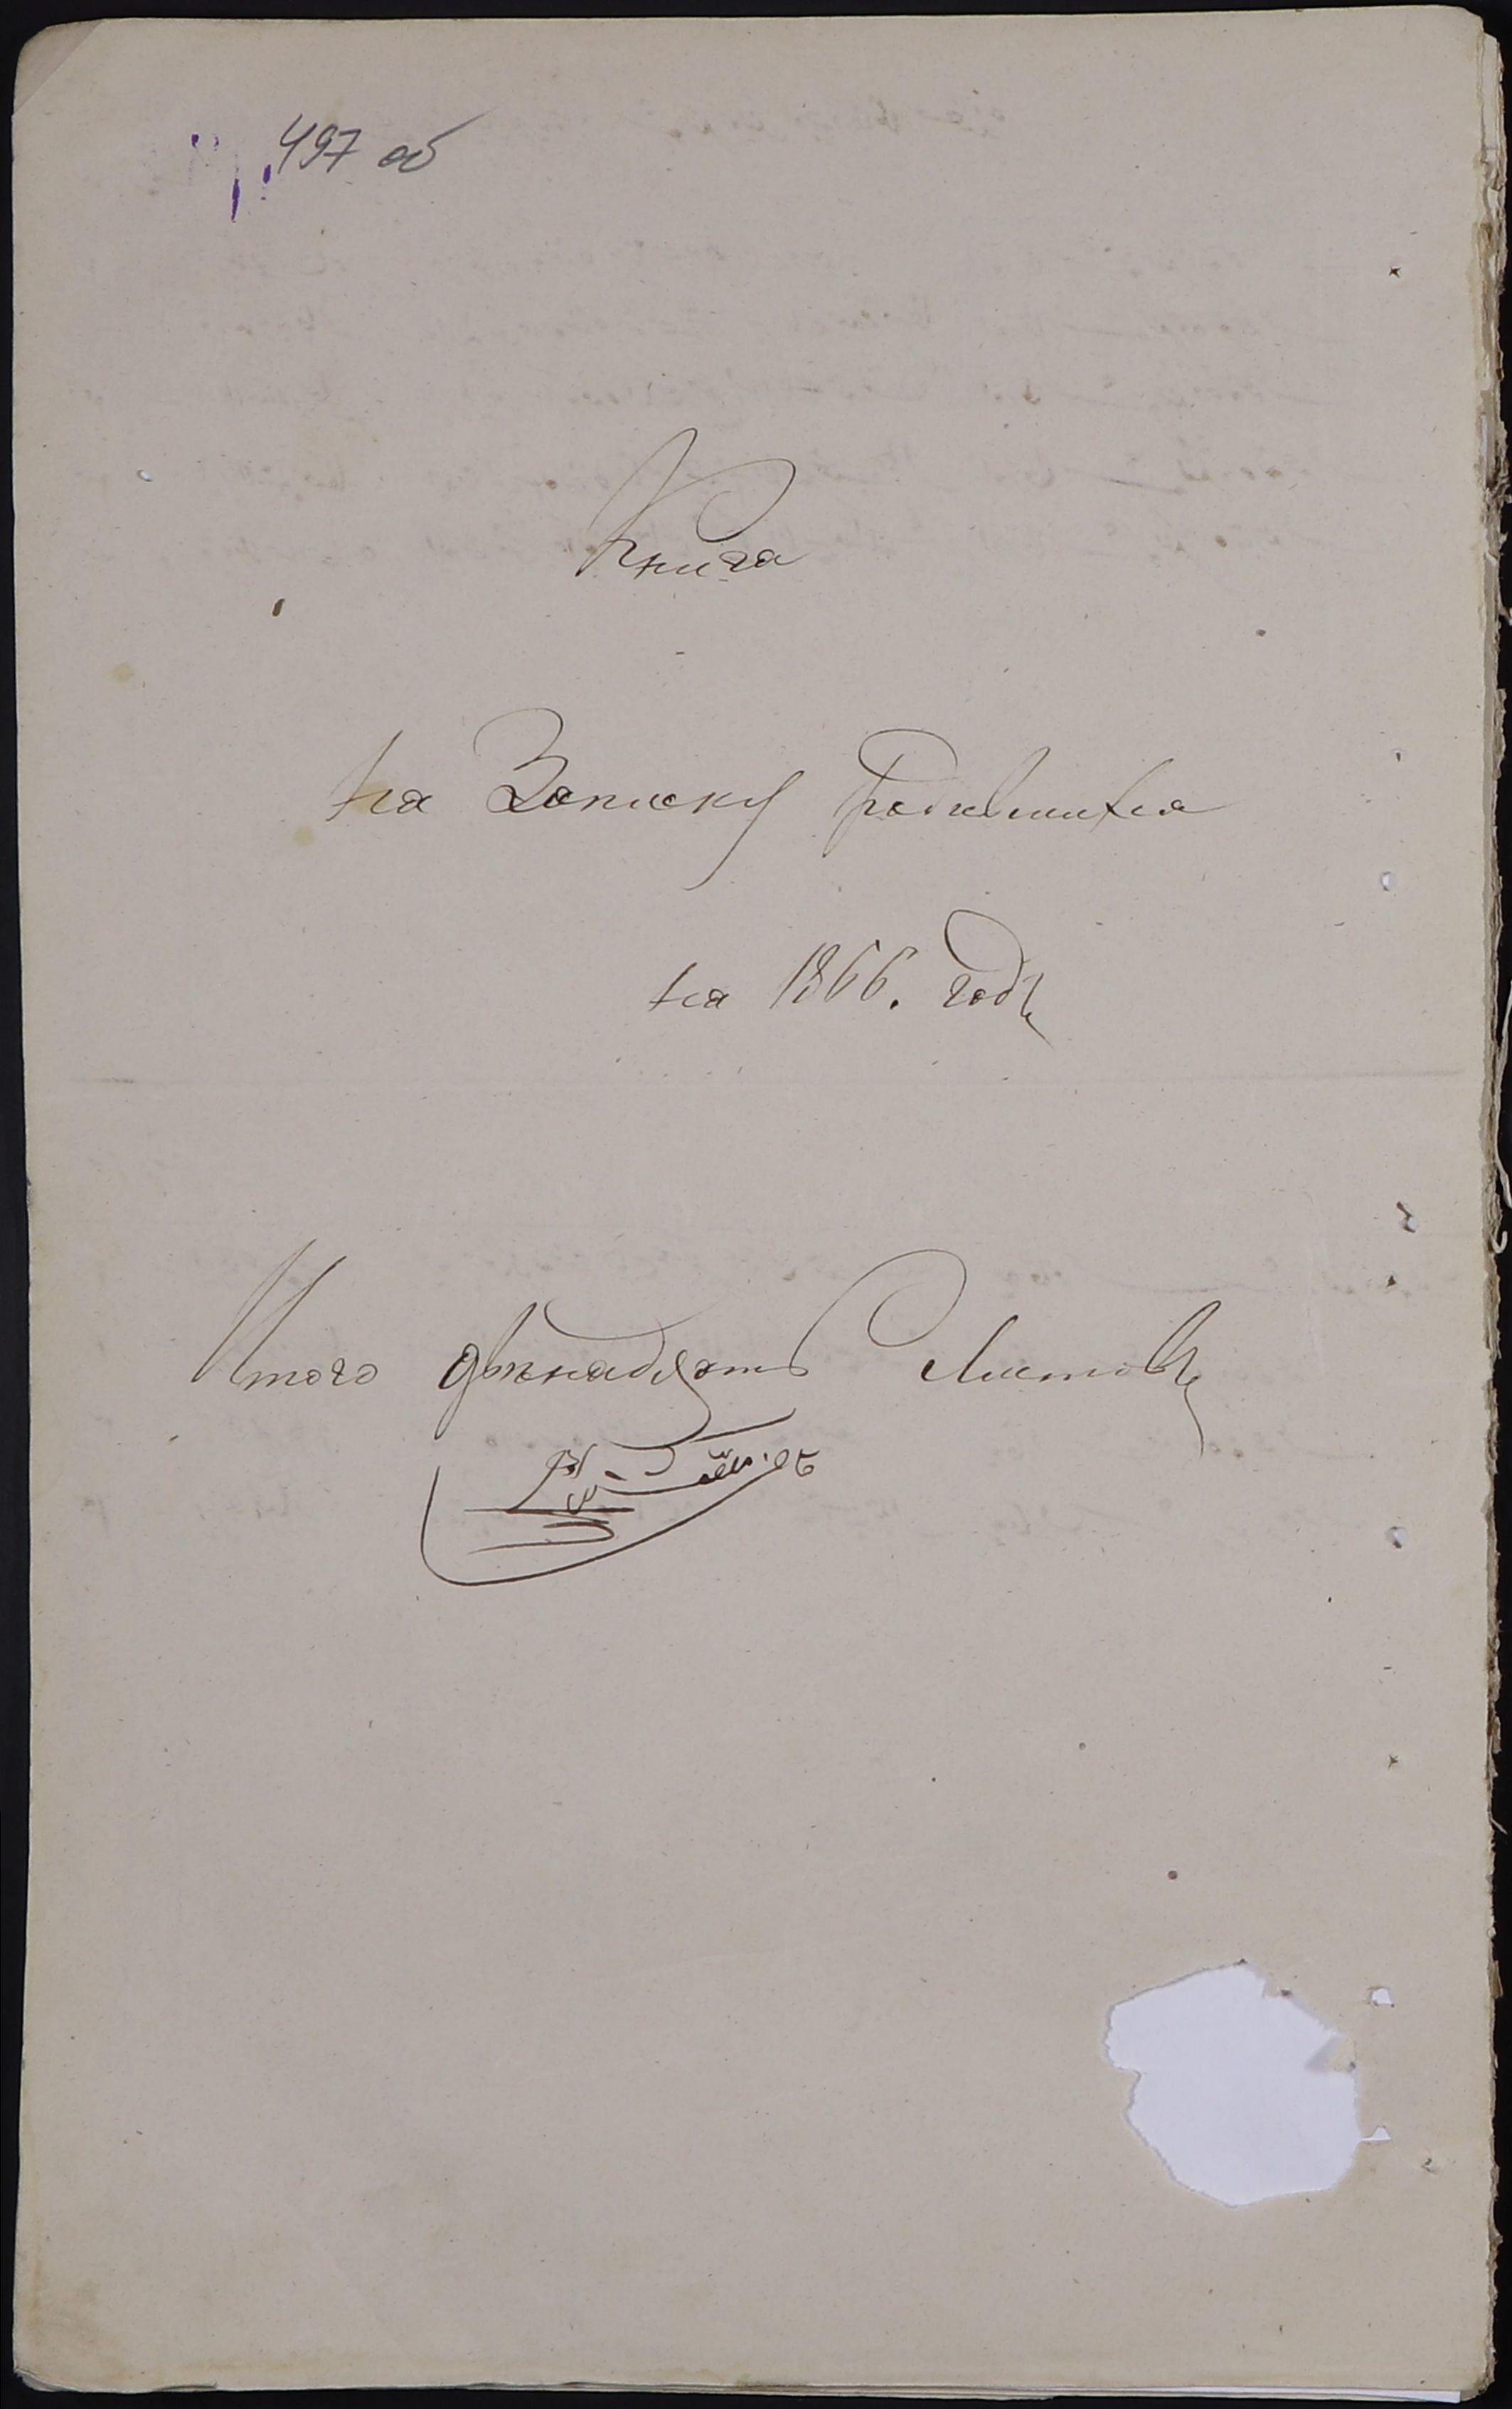 497 об
Книга
на Записку родившихся
на 1866. годъ
Итого двенадцать Листовъ